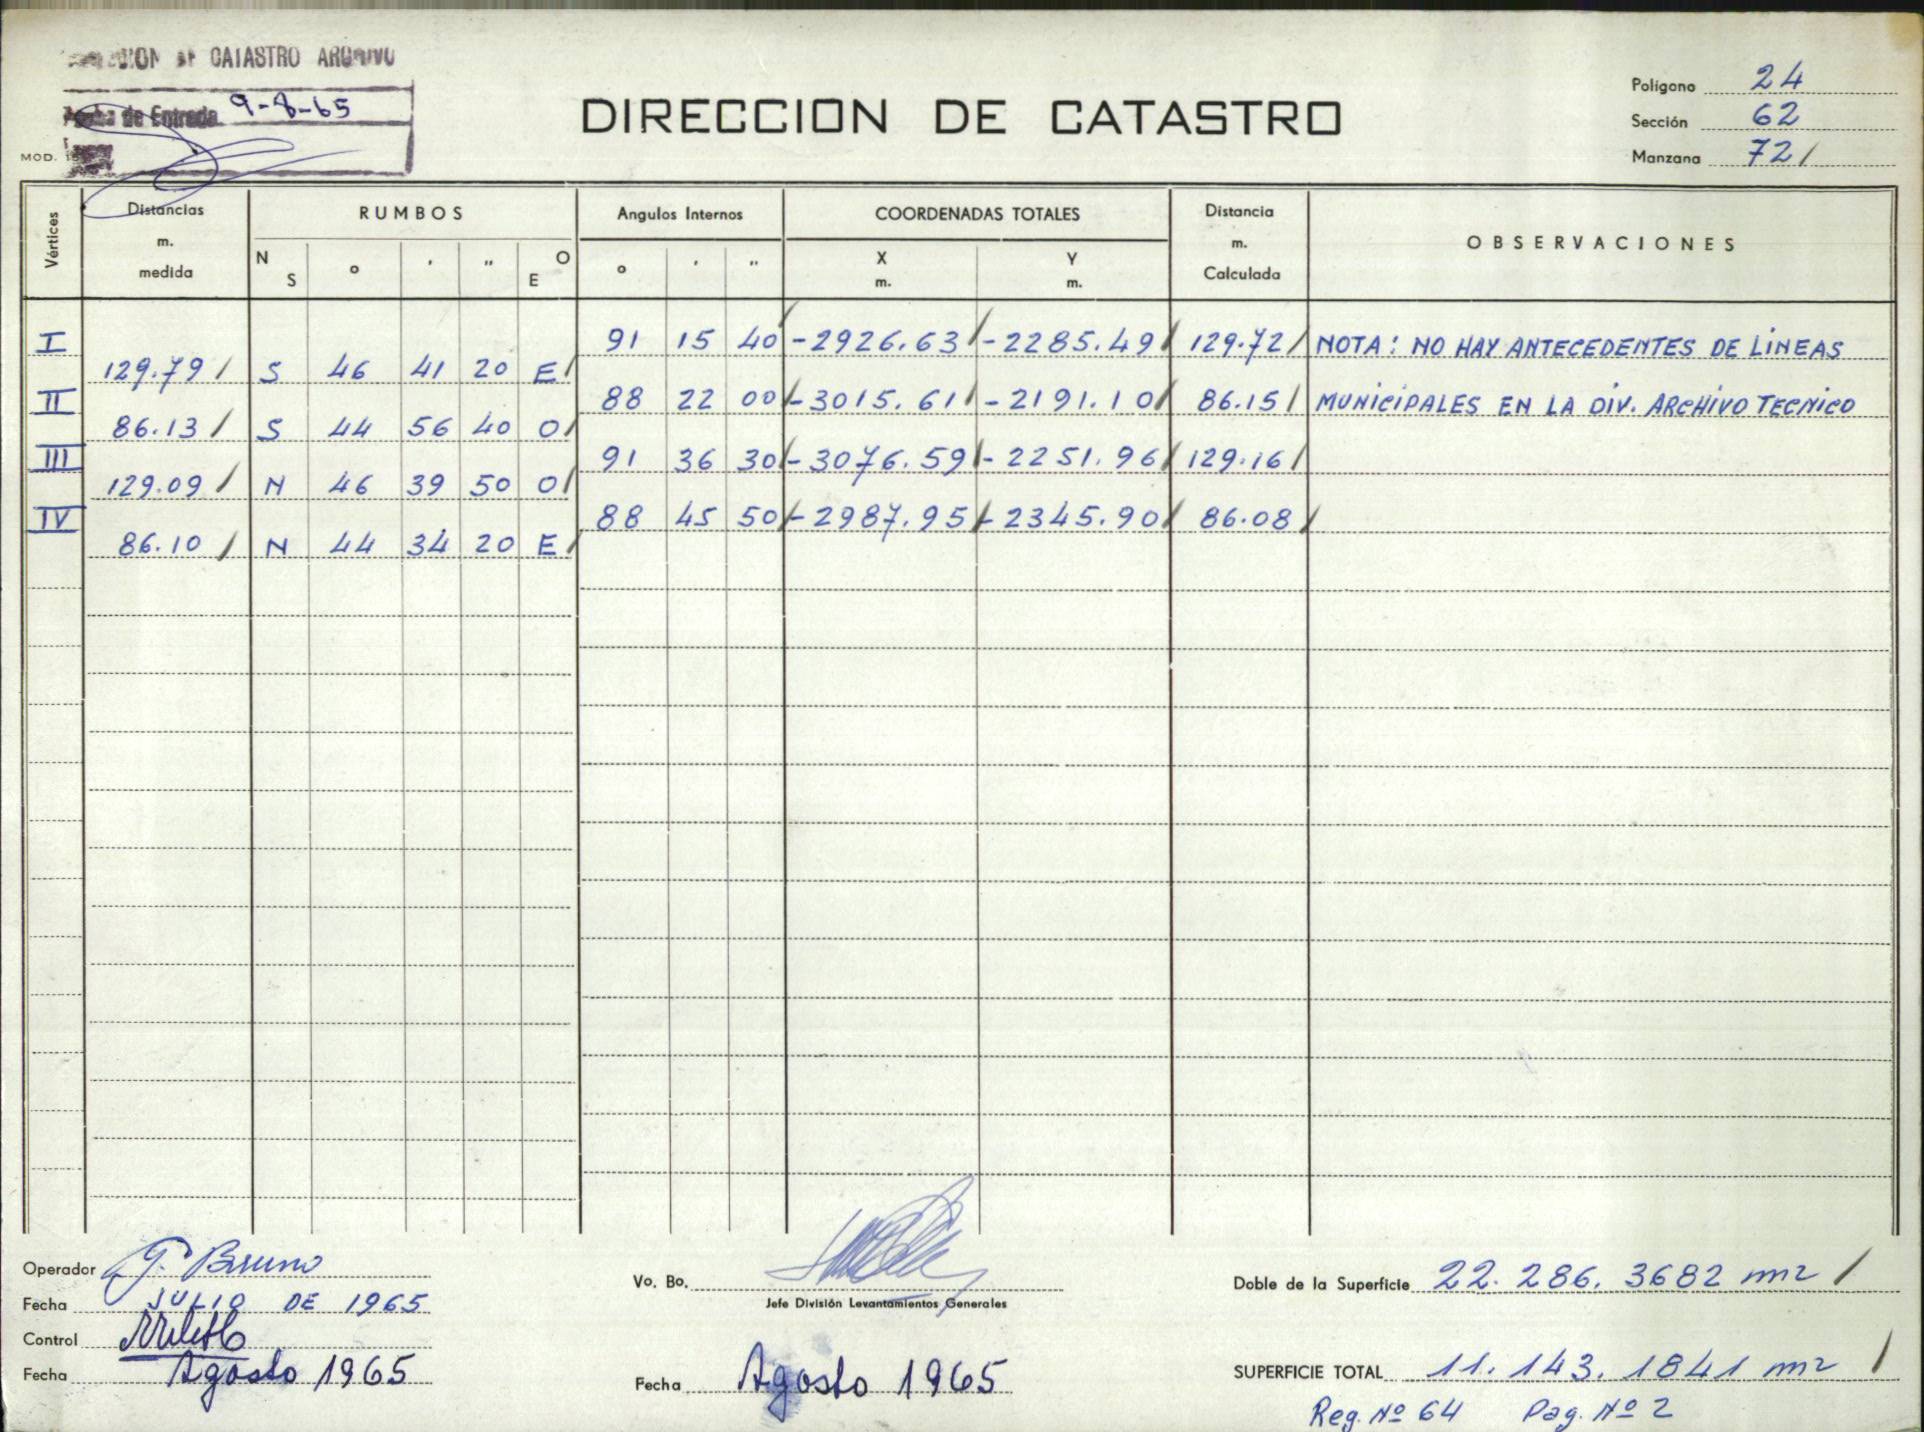 DE CATASTRO ARCHIVO
Fecha de Entrada 9-8-65
MOD.
DIRECCION DE CATASTRO
Polígono 24
Sección 62
Manzana 72 /
Vértices
Distancias m. medida
RUMBOS
N S ° ' " O E
Angulos Internos
° ' "
COORDENADAS TOTALES
X m.
Y m.
Distancia m. Calculada
OBSERVACIONES
I 91 15 40 -2926.63 / -2285.49 / 129.72 / NOTA: NO HAY ANTECEDENTES DE LINEAS
129.79 / S 46 41 20 E /
II 88 22 00 / -3015.61 / -2191.10 / 86.15 / MUNICIPALES EN LA DIV. ARCHIVO TECNICO
86.13 / S 44 56 40 O /
III 91 36 30 / -3076.59 / -2251.96 / 129.16 /
129.09 / N 46 39 50 O /
IV 88 45 50 / -2987.95 / -2345.90 / 86.08 /
86.10 / N 44 34 20 E /
Operador G. Bruno
Fecha JULIO DE 1965
Control
Fecha Agosto 1965
Vo. Bo.
Jefe División Levantamientos Generales
Fecha Agosto 1965
Doble de la Superficie 22.286.3682 m2 /
SUPERFICIE TOTAL 11.143.1841 m2 /
Reg. Nº 64 Pag. Nº 2